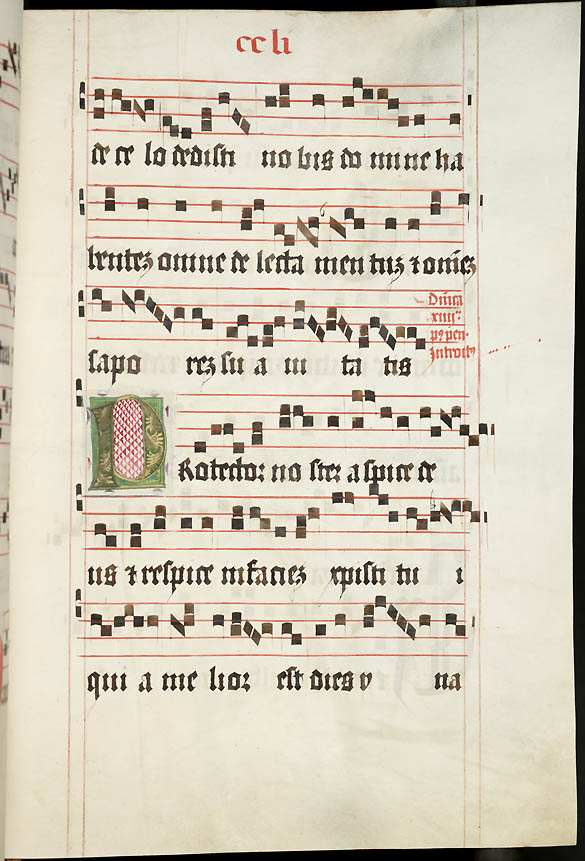 cc li
de ce lo dedisti no bis do mine ha
bentez omne de lecta men tuz ⁊ omēz
sapo rez su a ui ta tis
Dn̄ica
xiiij.ª
pꝰ pen.
Introitꝰ
PRotector no ster aspice de
us ⁊ respice in faciez xpisti tu i
qui a me lior est dies v na